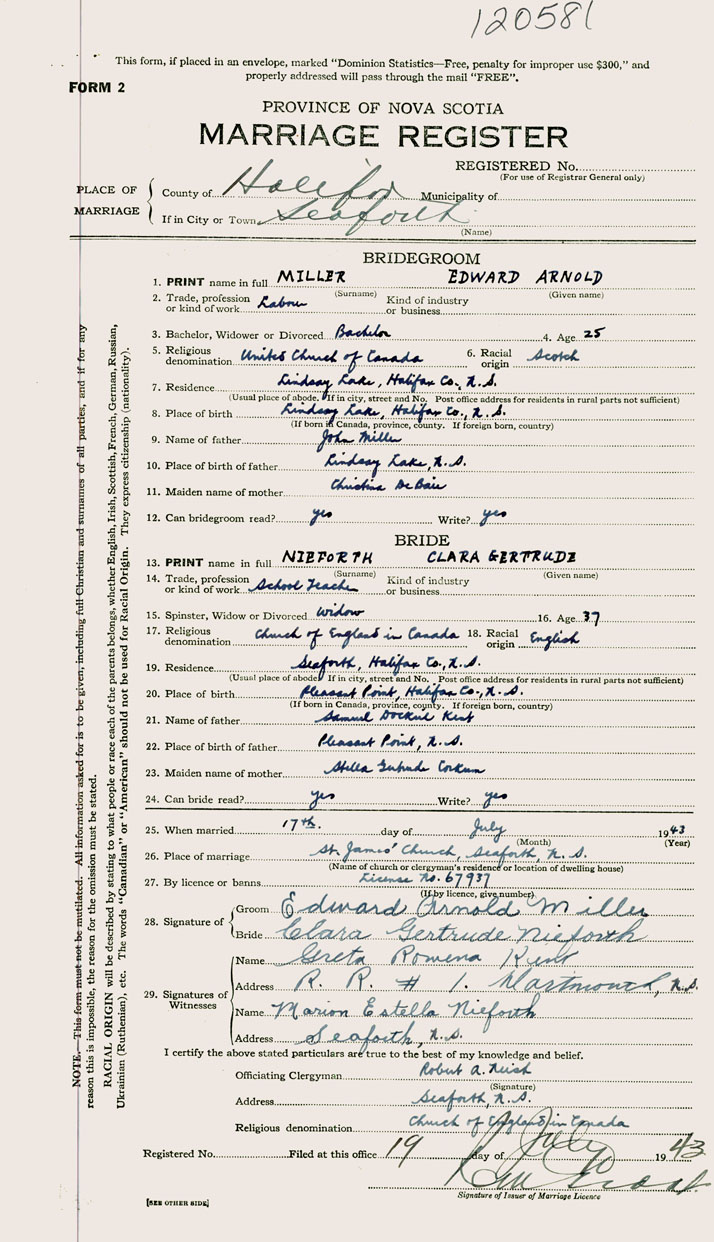 120581
This form, if placed in an envelope, marked "Dominion Statistics—Free, penalty for improper use $300," and
properly addressed will pass through the mail "FREE".
FORM 2
PROVINCE OF NOVA SCOTIA
MARRIAGE REGISTER
REGISTERED No.
(For use of Registrar General only)
PLACE OF MARRIAGE
County of Halifax Municipality of
If in City or Town Seaforth
(Name)
BRIDEGROOM
1. PRINT name in full MILLER EDWARD ARNOLD
(Surname) (Given name)
2. Trade, profession or kind of work Labour Kind of industry or business
3. Bachelor, Widower or Divorced Bachelor 4. Age 25
5. Religious denomination United Church of Canada 6. Racial origin Scotch
7. Residence Lindsay Lake, Halifax Co., N.S.
(Usual place of abode. If in city, street and No. Post office address for residents in rural parts not sufficient)
8. Place of birth Lindsay Lake, Halifax Co., N.S.
(If born in Canada, province, county. If foreign born, country)
9. Name of father John Miller
10. Place of birth of father Lindsay Lake, N.S.
11. Maiden name of mother Christina DeBaie
12. Can bridegroom read? yes Write? yes
BRIDE
13. PRINT name in full NIEFORTH CLARA GERTRUDE
(Surname) (Given name)
14. Trade, profession or kind of work School Teacher Kind of industry or business
15. Spinster, Widow or Divorced Widow 16. Age 37
17. Religious denomination Church of England in Canada 18. Racial origin English
19. Residence Seaforth, Halifax Co., N.S.
(Usual place of abode. If in city, street and No. Post office address for residents in rural parts not sufficient)
20. Place of birth Pleasant Point, Halifax Co., N.S.
(If born in Canada, province, county. If foreign born, country)
21. Name of father Samuel Kent
22. Place of birth of father Pleasant Point, N.S.
23. Maiden name of mother Stella Gertrude Corkum
24. Can bride read? yes Write? yes
25. When married 17th. day of July 1943
(Month) (Year)
26. Place of marriage St. James' Church, Seaforth, N.S.
(Name of church or clergyman's residence or location of dwelling house)
27. By licence or banns License No. 67937
(If by licence, give number)
28. Signature of
Groom Edward Arnold Miller
Bride Clara Gertrude Nieforth
29. Signatures of Witnesses
Name Greta Rowena Kent
Address R. R. # 1. Dartmouth, N.S.
Name Marion Estella Nieforth
Address Seaforth, N.S.
I certify the above stated particulars are true to the best of my knowledge and belief.
Officiating Clergyman Robert A.
(Signature)
Address Seaforth, N.S.
Religious denomination Church of England in Canada
Registered No. Filed at this office 19 day of July 1943
Signature of Issuer of Marriage Licence
[SEE OTHER SIDE]
NOTE.—This form must not be mutilated. All information asked for is to be given, including full Christian and surnames of all parties, and if for any
reason this is impossible, the reason for the omission must be stated.
RACIAL ORIGIN will be described by stating to what people or race each of the parents belongs, whether English, Irish, Scottish, French, German, Russian,
Ukrainian (Ruthenian), etc. The words "Canadian" or "American" should not be used for Racial Origin. They express citizenship (nationality).